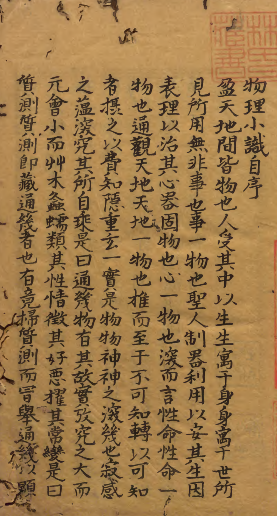 物理小識自序
盈天地間皆物也人受其中以生生寓于身身寓于世所
見所用無非事也事一物也聖人制器利用以安其生因
表理以治其心器固物也心一物也深而言性命性命一
物也通觀天地天地一物也推而至于不可知轉以可知
者攝之以費知隱重玄一實是物物神神之深幾也寂感
之蘊深究其所自來是曰通幾物有其故實考究之大而
元會小而艸木蠢蠕類其性情徵其好惡推其常變是曰
質測質測即藏通幾者也有竟掃質測而冒舉通幾以顯